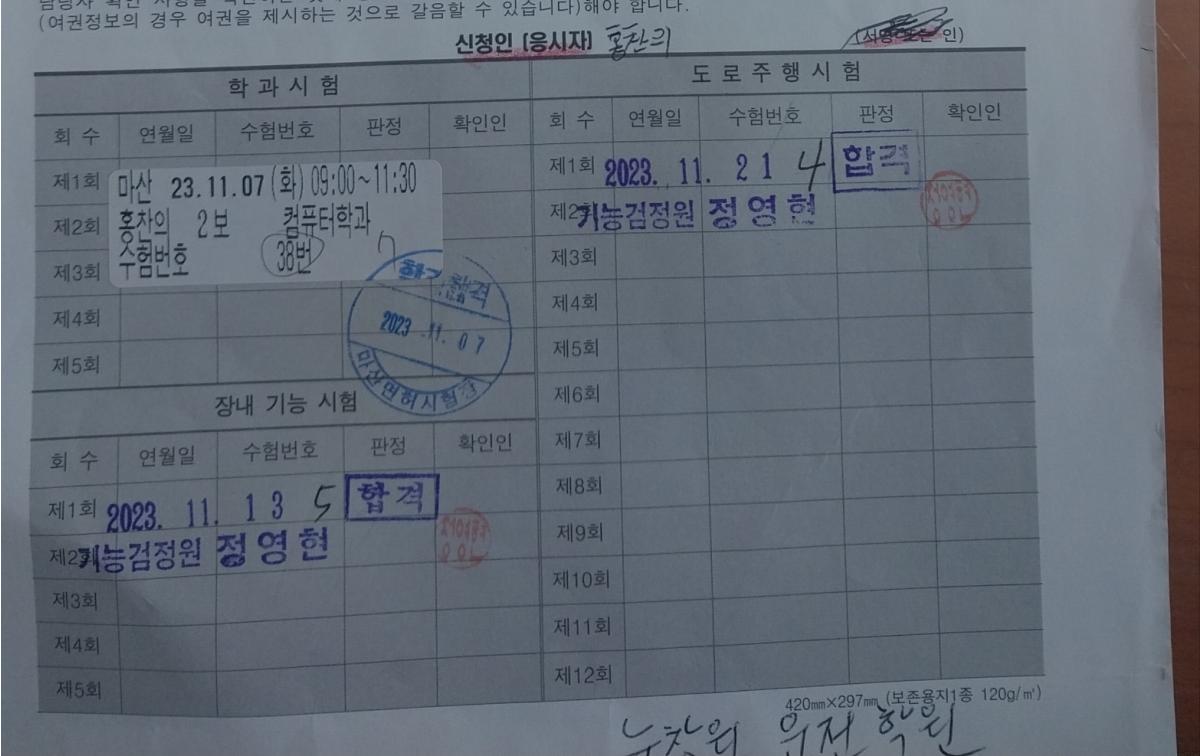 (여권정보의 경우 여권을 제시하는 것으로 갈음할 수 있습니다)해야 합니다.
신청인 [응시자] 홍찬의 (서명 또는 인)
학 과 시 험
회 수 연월일 수험번호 판정 확인인
제1회
제2회
제3회
제4회
제5회
마산 23.11.07(화)09:00~11:30
홍찬의 2보 컴퓨터학과
수험번호 38번
합격
2023 .11. 07
마산면허시험장
장내 기능 시험
회 수 연월일 수험번호 판정 확인인
제1회 2023. 11. 13 5 합격
제2회 기능검정원 정영현
제3회
제4회
제5회
도 로 주 행 시 험
회 수 연월일 수험번호 판정 확인인
제1회 2023. 11. 21 4 합격
제2회 기능검정원 정영현
제3회
제4회
제5회
제6회
제7회
제8회
제9회
제10회
제11회
제12회
420㎜×297㎜ (보존용지1종 120g/㎡)
운전 학원